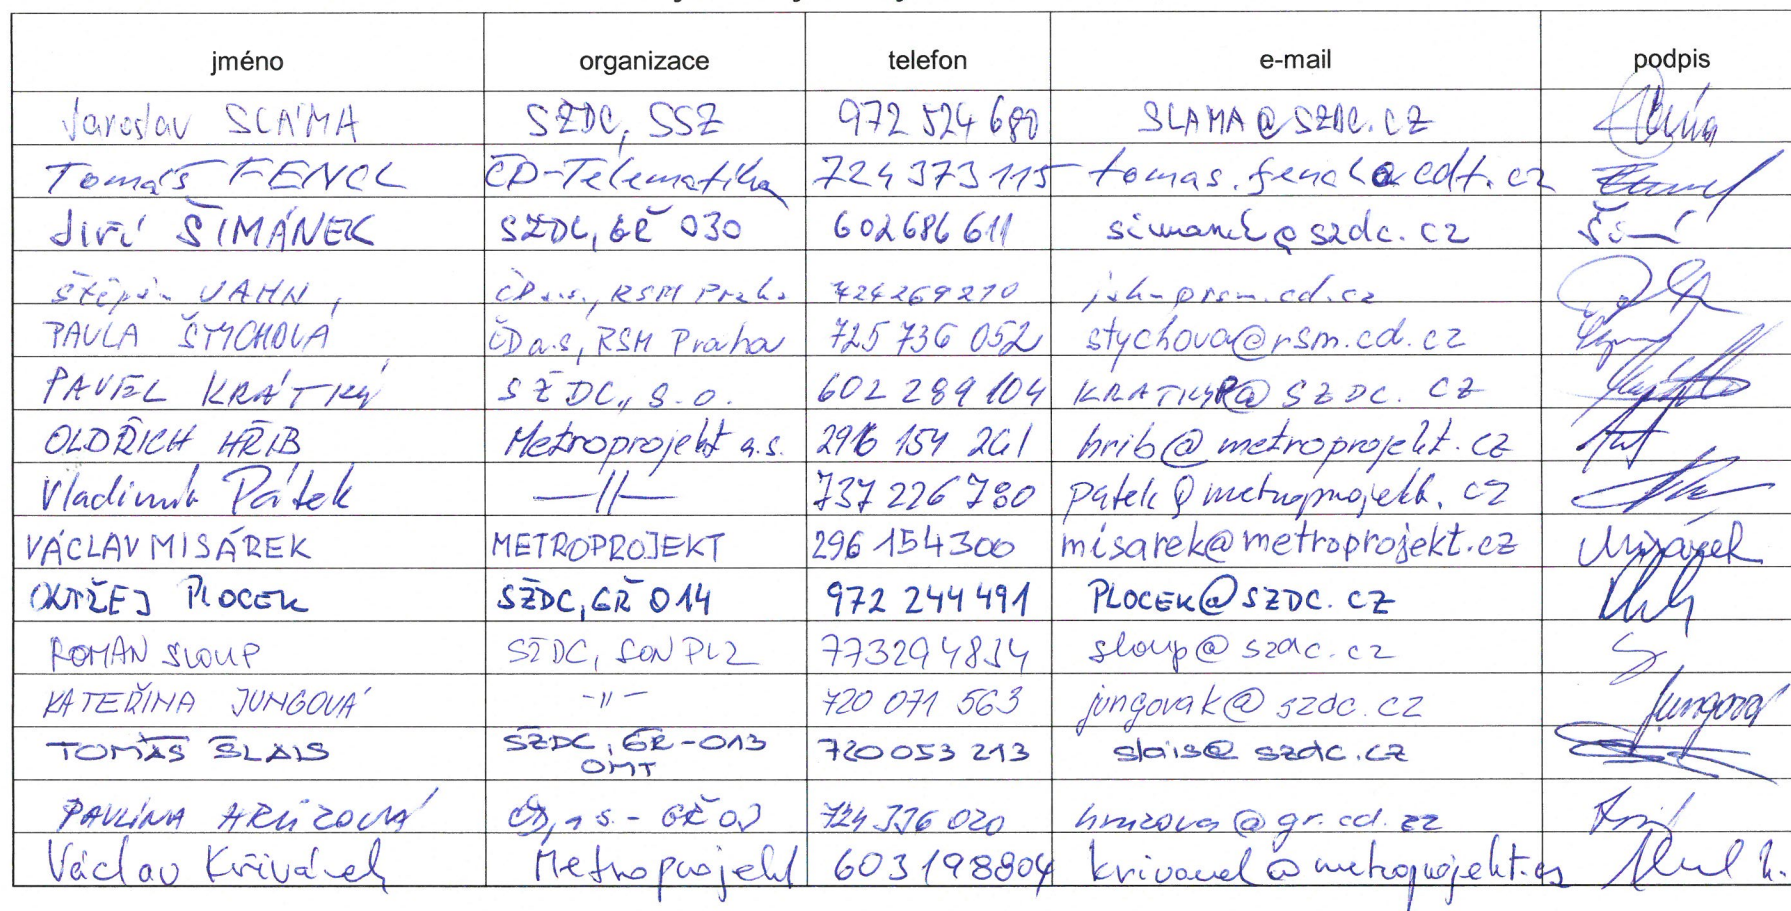 jméno organizace telefon e-mail podpis
Jaroslav SLÁMA SŽDC, SSZ 972 524 680 SLAMA@SZDC.CZ
Tomáš FENCL ČD-Telematika 724 373 115 tomas.fencl@cdt.cz
Jiří ŠIMÁNEK SŽDC, GŘ 030 602 686 611 simanek@szdc.cz
Štěpán JAHN, ČD a.s., RSM Praha 724269270 jahn@rsm.cd.cz
PAVLA ŠTYCHOVÁ ČD a.s, RSM Praha 725 736 052 stychova@rsm.cd.cz
PAVEL KRÁTKÝ SŽDC, s.o. 602 289 104 KRATKYP@SZDC.CZ
OLDŘICH HŘIB Metroprojekt a.s. 296 154 261 hrib@metroprojekt.cz
Vladimír Pátek —||— 737 226 780 patek@metroprojekt.cz
VÁCLAV MISÁREK METROPROJEKT 296 154300 misarek@metroprojekt.cz Misárek
ONDŘEJ PLOCEK SŽDC, GŘ 014 972 244 491 PLOCEK@SZDC.CZ
ROMAN SLOUP SŽDC, SON PLZ 773294834 sloup@szdc.cz
KATEŘINA JUNGOVÁ -||- 720 071 563 jungovak@szdc.cz Jungová
TOMÁŠ SLAIS SŽDC, GŘ-013 720053 213 slais@szdc.cz
OMT
PAVLÍNA HRŮZOVÁ ČD, a.s. - GŘ 03 724 336 020 hruzova@gr.cd.cz
Václav Křivánek Metroprojekt 603198804 krivanek@metroprojekt.cz